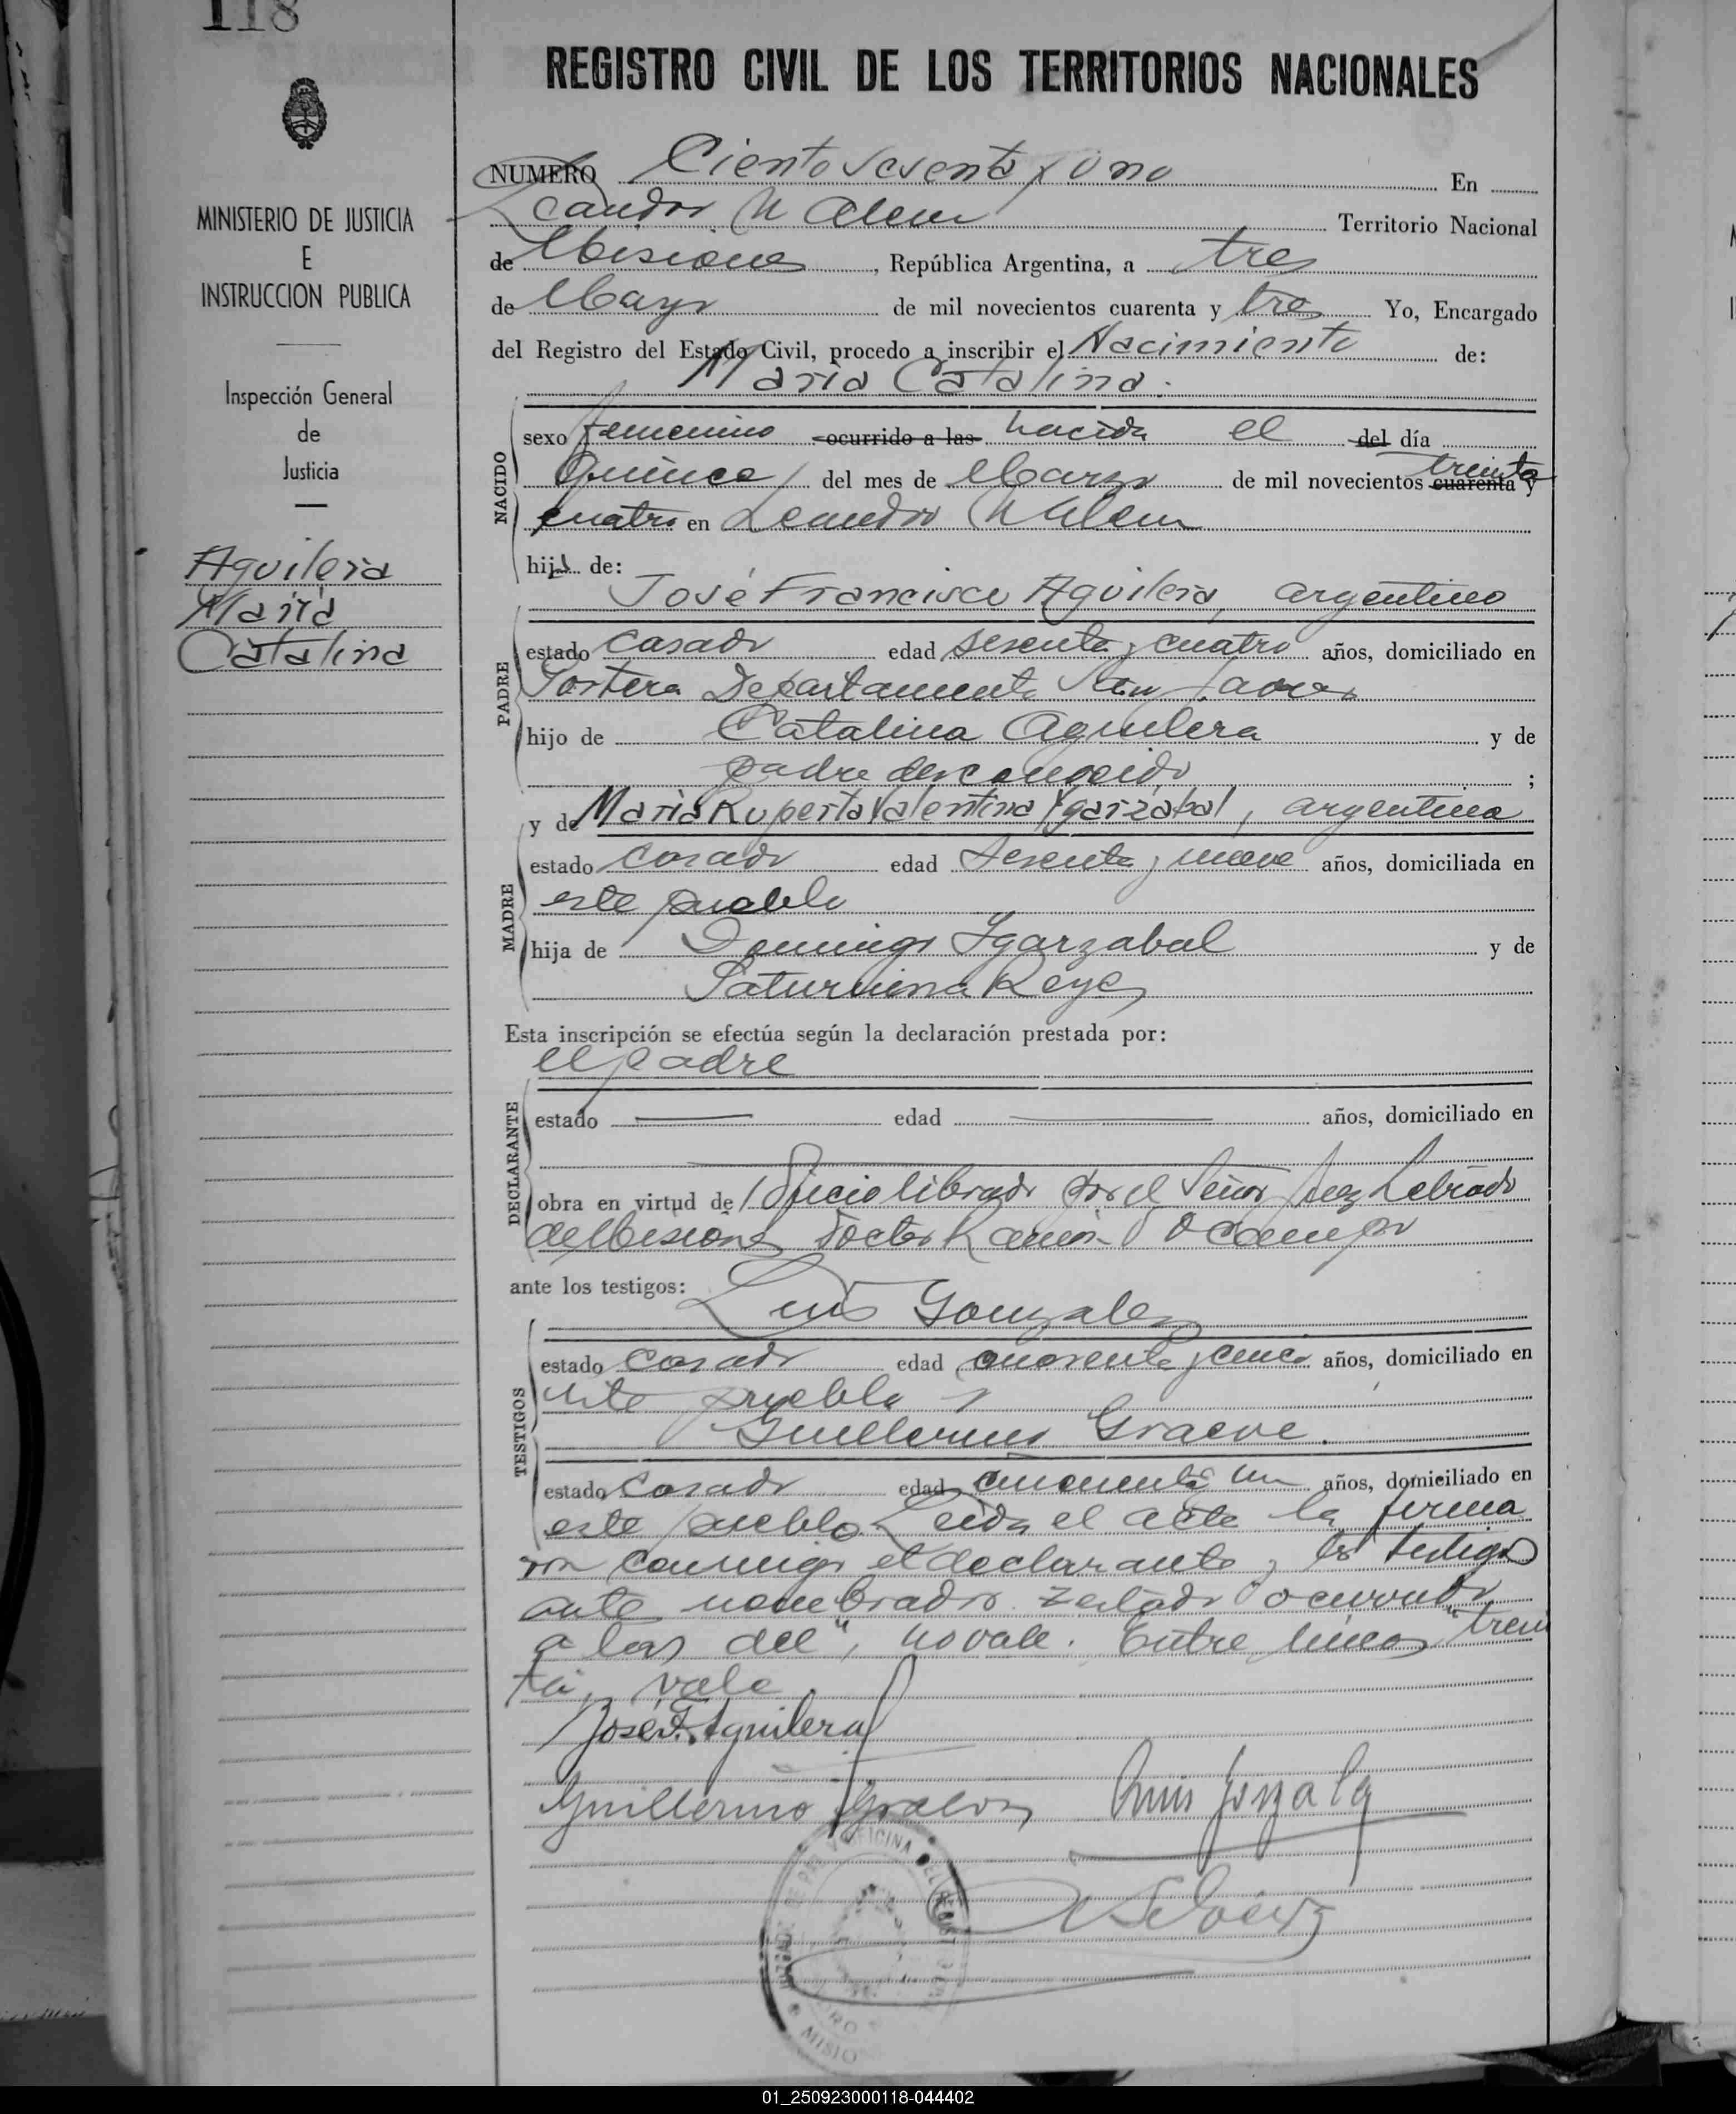 118
REGISTRO CIVIL DE LOS TERRITORIOS NACIONALES
MINISTERIO DE JUSTICIA
E
INSTRUCCION PUBLICA
Inspección General
de
Justicia
Aguilera
María
Catalina
NUMERO Ciento sesenta y uno En
Leandro N Alem Territorio Nacional
de Misiones, República Argentina, a tres
de Mayo de mil novecientos cuarenta y tres Yo, Encargado
del Registro del Estado Civil, procedo a inscribir el Nacimiento de:
María Catalina.
NACIDO
sexo femenino ocurrido a las nacida el del día
treinta
quince del mes de Marzo de mil novecientos cuarenta y
cuatro en Leandro N Alem
hija de:
José Francisco Aguilera, argentino
PADRE
estado casado edad sesenta y cuatro años, domiciliado en
Departamento San Javier
hijo de Catalina Aguilera y de
padre desconocido ;
y de María Ruperta Valentina Ygarzabal, argentina
MADRE
estado casada edad sesenta y nueve años, domiciliada en
este pueblo
hija de Domingo Ygarzabal y de
Saturnina Reyes
Esta inscripción se efectúa según la declaración prestada por:
el padre
DECLARANTE
estado edad años, domiciliado en
obra en virtud de Oficio librado por el Señor Juez Letrado
de Misiones Doctor Ramón Ocampo
ante los testigos: Luis Gonzalez
TESTIGOS
estado casado edad cuarenta y cinco años, domiciliado en
este pueblo y
Guillermo Graeve.
estado casado edad un años, domiciliado en
este pueblo Leída el acta la firma
ron conmigo el declarante y los testigos
ante nombrados. Testado "ocurrido
a las del", no vale. Entre líneas "trein
ta", vale
José F. Aguilera
Guillermo Graeve Luis Gonzalez
OFICINA DEL REGIST
MISIO
01_250923000118-044402